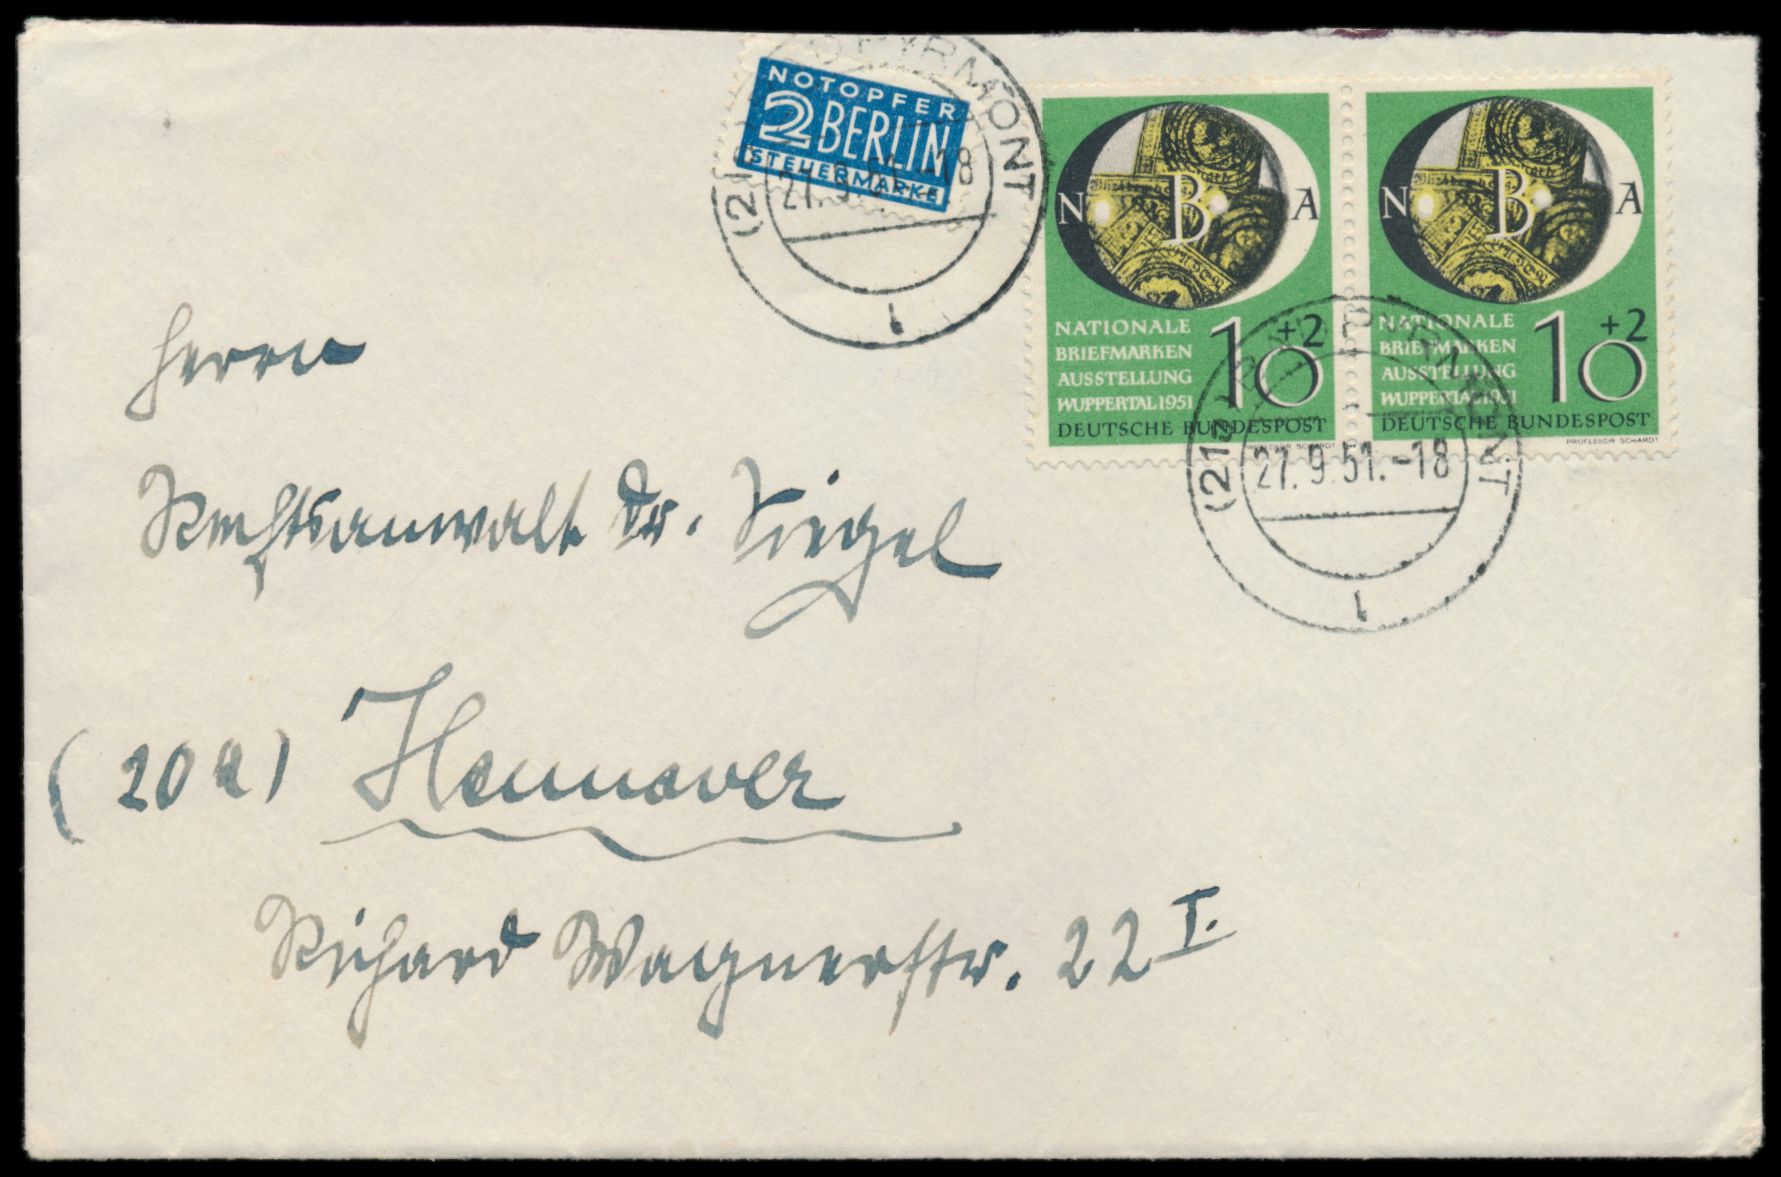 NOTOPFER
2 BERLIN
STEUERMARKE
PYRMONT
(21
1
N B A
NATIONALE
BRIEFMARKEN
AUSSTELLUNG
WUPPERTAL 1951
10 +2
DEUTSCHE BUNDESPOST
PROFESSOR SCHARDT
N B A
NATIONALE
BRIEFMARKEN
AUSSTELLUNG
WUPPERTAL 1951
10 +2
DEUTSCHE BUNDESPOST
PROFESSOR SCHARDT
(21a) BAD PYRMONT
27.9.51.-18
1
Herrn
Rechtsanwalt Dr. Siegel
(20a) Hannover
Richard Wagnerstr. 22 I.